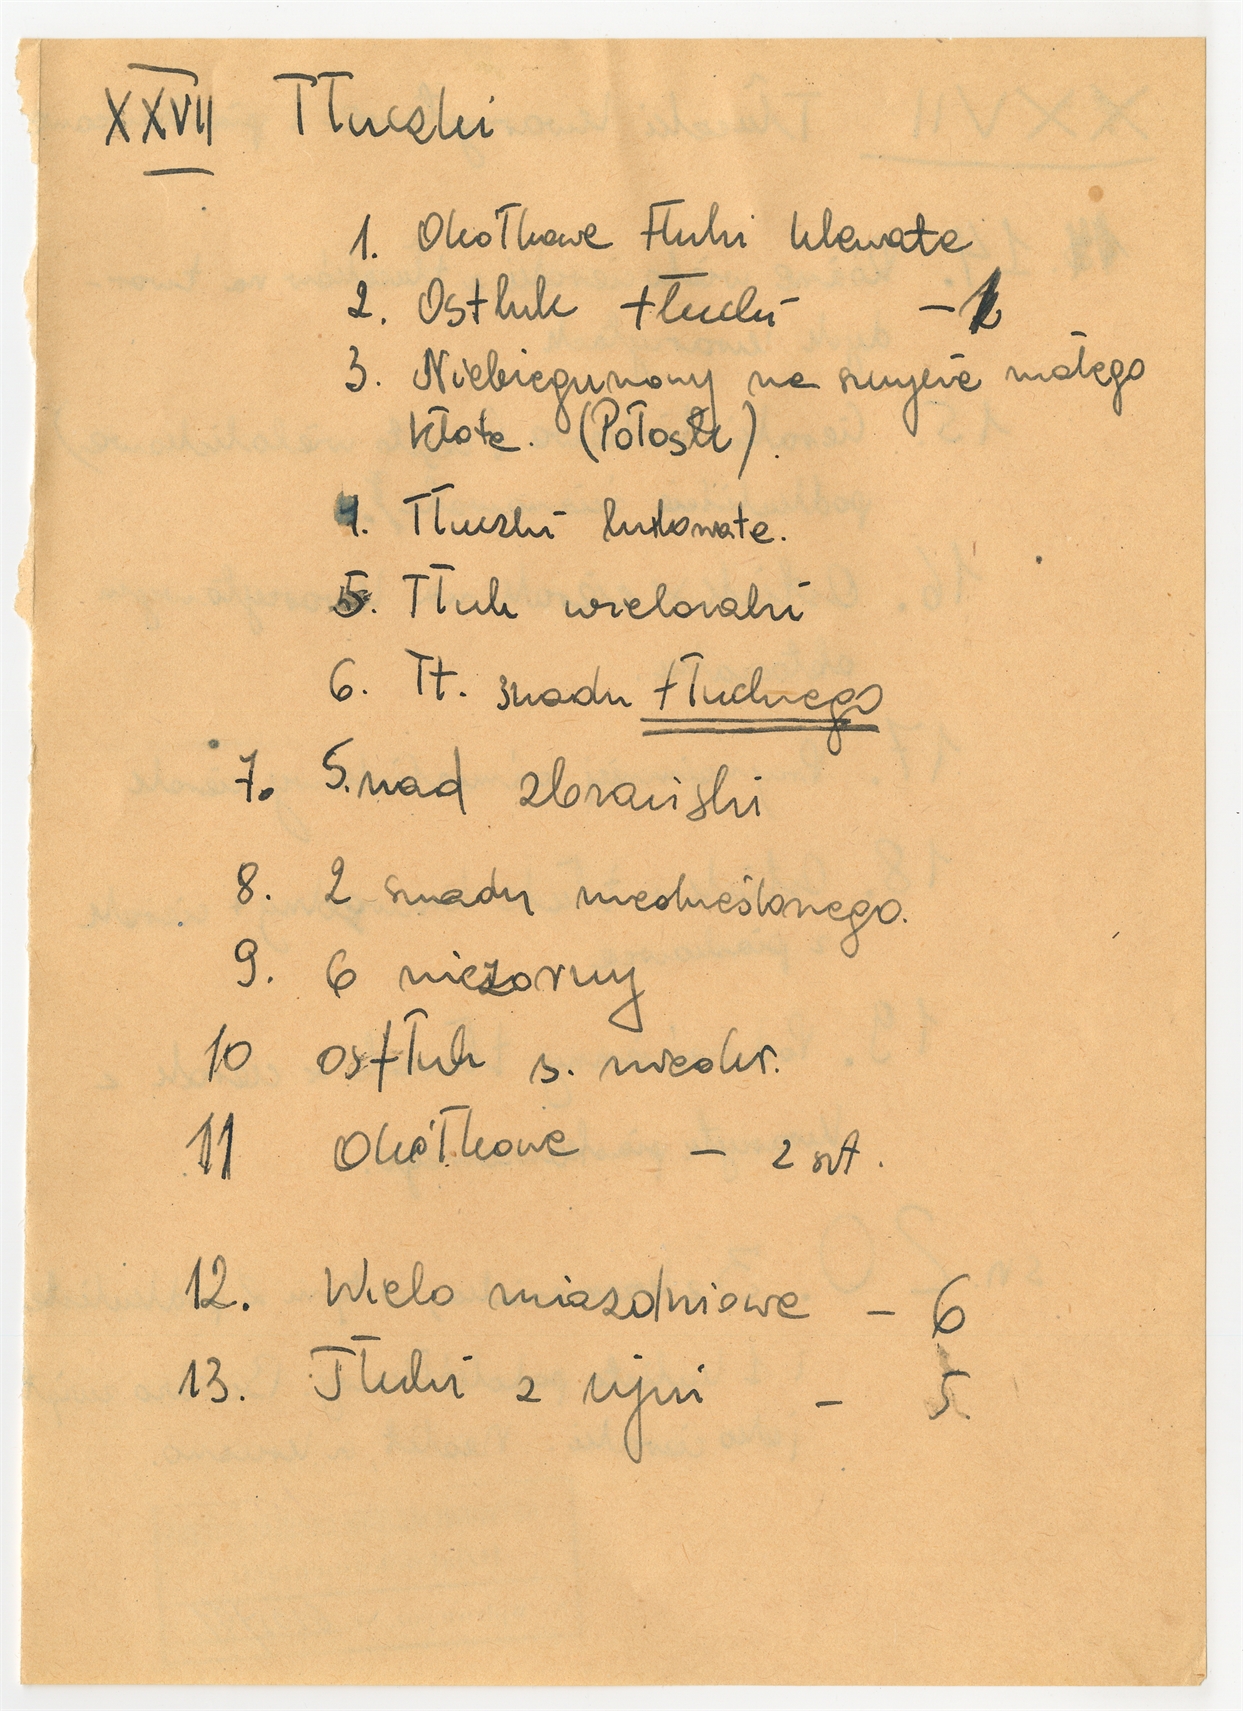 XXVII Tłuczki
1. Okołkowe tłuki klewate
2. Ostłuk tłucki -
3. Niebiegunowy na smycie małego
kłota. (Połosk).
4. Tłuczki ludowate.
5. Tłuk wielosalni
6. Tł. snadu tłucznego
7. S.nad zbrański
8. 2 snadu nieokreślonego.
9. 6 niezorny
10 Ostłuk s. nieokr.
11 Okołkowe - 2 szt.
12. Wielo miazdniowe - 6
13. Tłuki z ujni - 5.